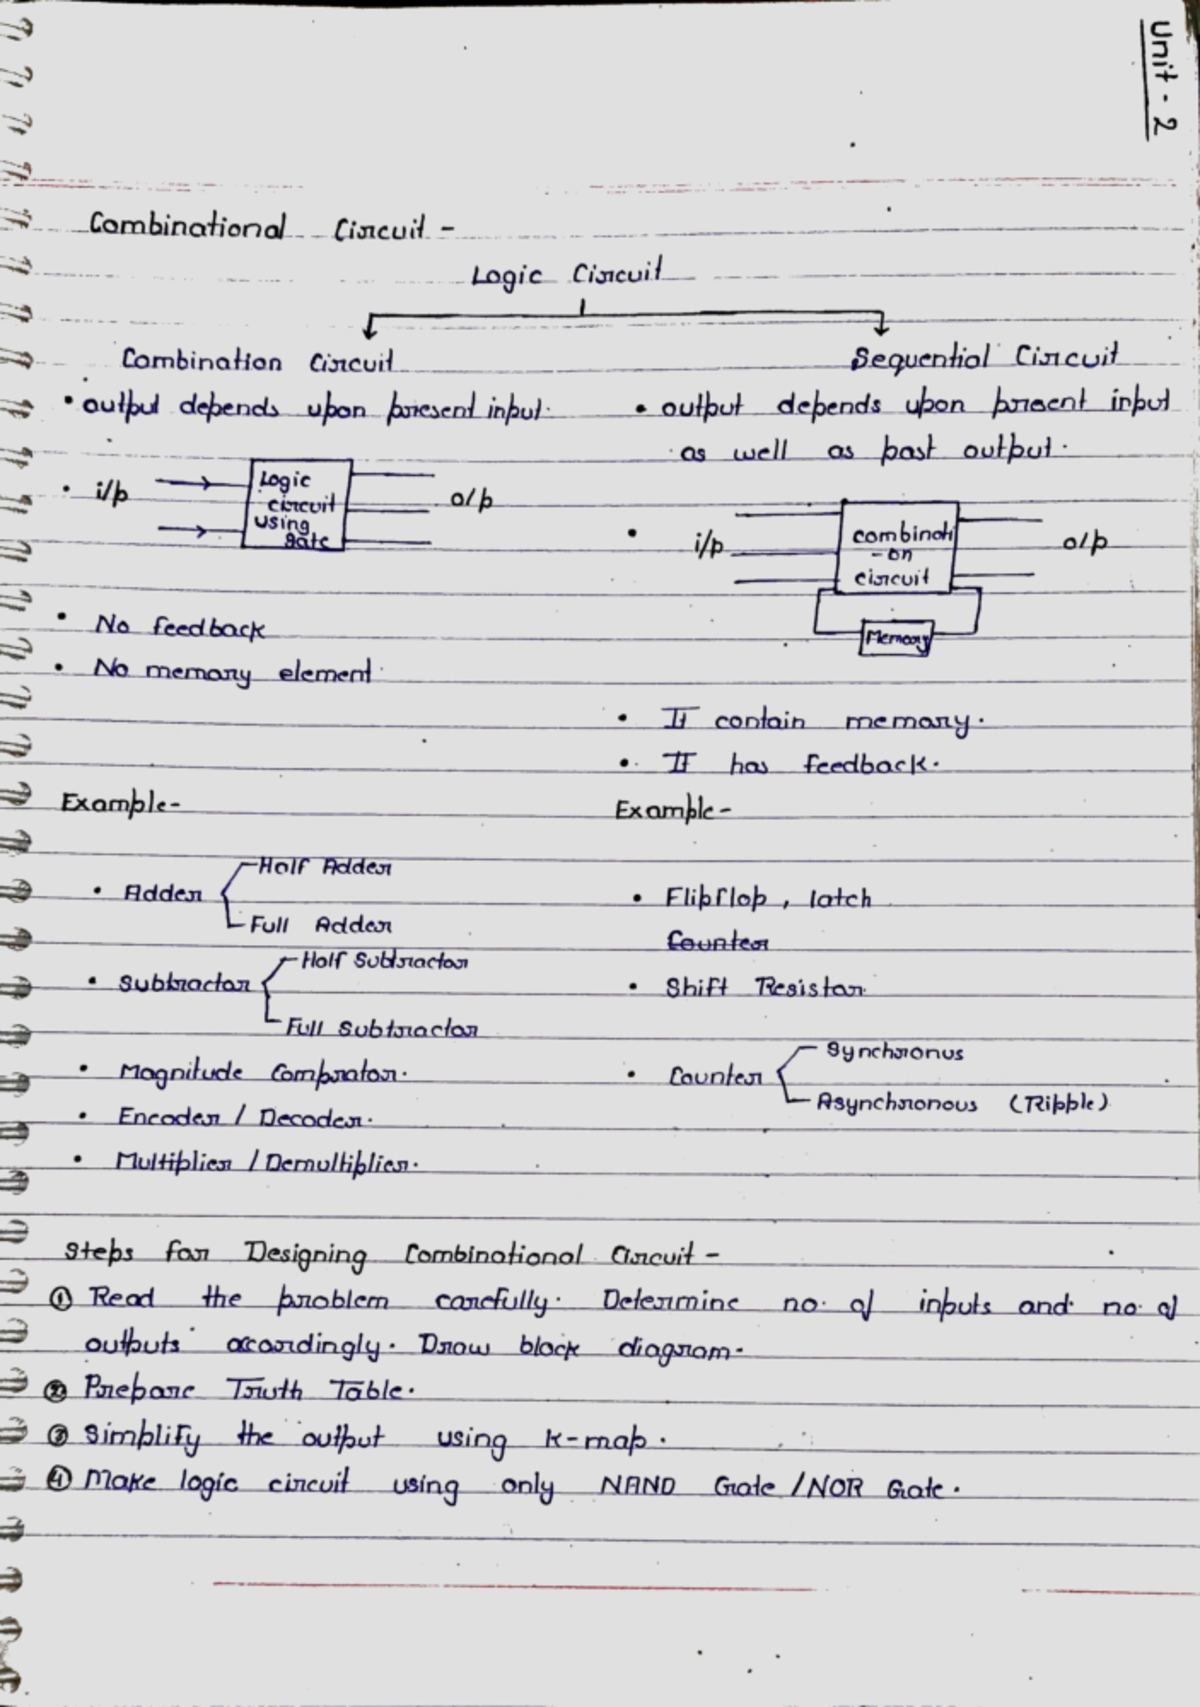 Unit - 2
Combinational Circuit -
Logic Circuit
Combination Circuit
• output depends upon present input.
• i/p
Logic
circuit
using
gate
o/p
• No feedback
• No memory element.
Sequential Circuit
• output depends upon present input
as well as past output.
• i/p
combinati
-on
circuit
o/p
Memory
• It contain memory.
• It has feedback.
Example-
• Adder
Half Adder
Full Adder
• Subtractor
Half Subtractor
Full Subtractor
• Magnitude Comprator.
• Encoder / Decoder.
• Multiplier / Demultiplier.
Example-
• Flipflop, latch
Counter
• Shift Resistor.
• Counter
Synchronus
Asynchronous (Ripple)
Steps for Designing Combinational Circuit -
① Read the problem carefully. Determine no. of inputs and no. of
outputs accordingly. Draw block diagram.
② Prepare Truth Table.
③ Simplify the output using K-map.
④ Make logic circuit using only NAND Gate / NOR Gate.